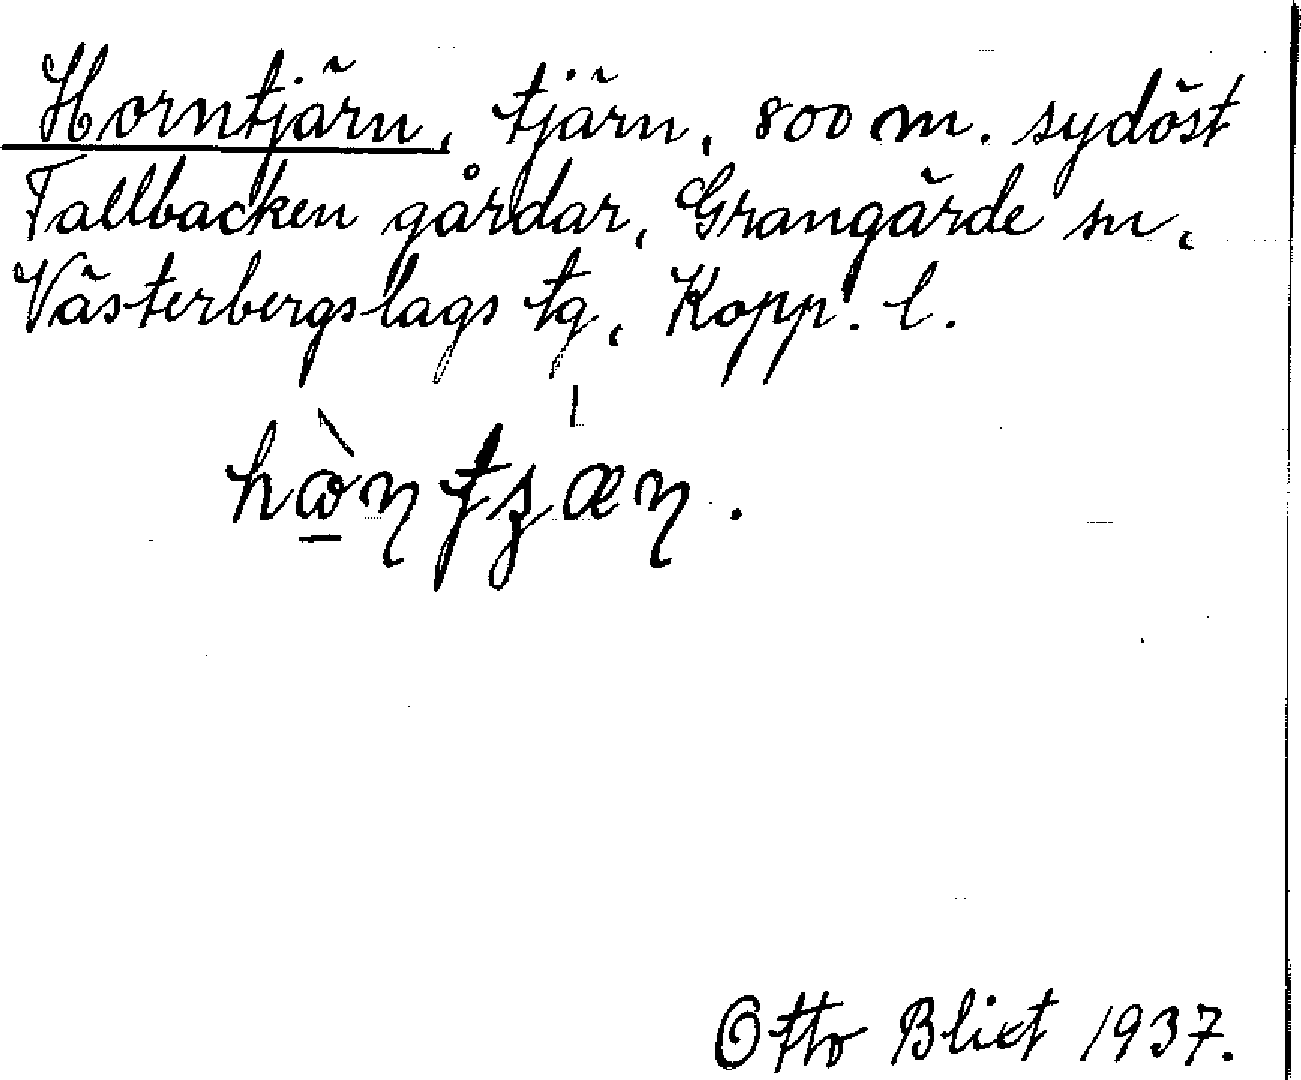 Horntjärn, tjärn, 800 m. sydöst
Tallbacken gårdar, Grangärde sn,
Västerbergslags tg, Kopp. l.
Otto Blixt 1937.